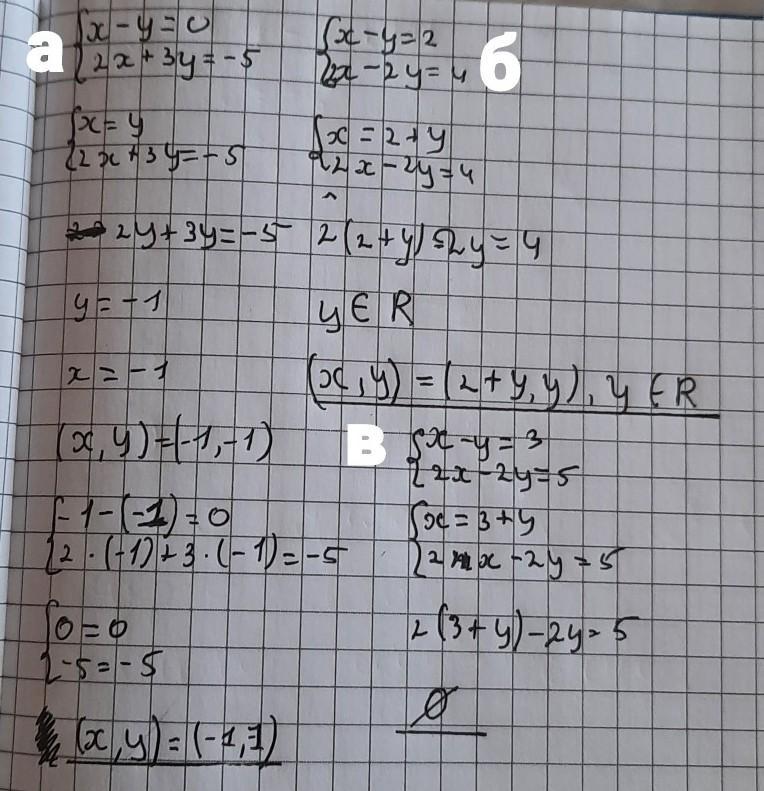 а
{x - y = 0
2x + 3y = -5
{x = y
2x + 3y = -5
2y + 3y = -5
y = -1
x = -1
(x, y) = (-1, -1)
{-1 - (-1) = 0
2 · (-1) + 3 · (-1) = -5
{0 = 0
-5 = -5
(x, y) = (-1, 1)
б
{x - y = 2
2x - 2y = 4
{x = 2 + y
2x - 2y = 4
2(2 + y) - 2y = 4
y ∈ R
(x, y) = (2 + y, y), y ∈ R
в
{x - y = 3
2x - 2y = 5
{x = 3 + y
2x - 2y = 5
2(3 + y) - 2y = 5
∅